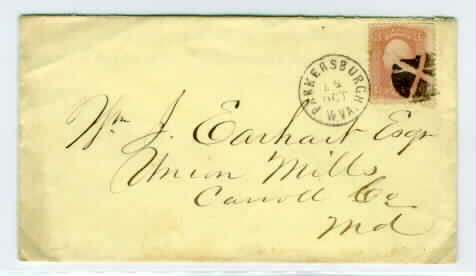 PARKERSBURGH, W.VA.
OCT
3 3
Wm J. Earhart Esqr
Union Mills
Carroll Co
Md